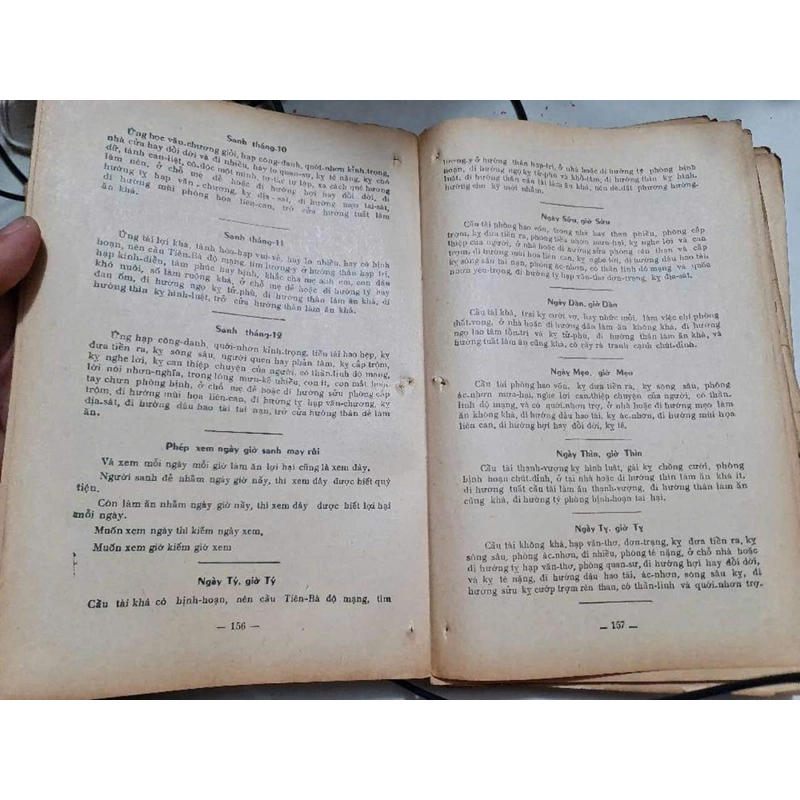 Sanh tháng-10
Ứng học văn-chương giỏi, hạp công-danh, quới-nhơn kỉnh-trọng,
nhà cửa hay đổi dời và đi nhiều, hay lo quan-sự, kỵ té nặng, kỵ chó
dữ, tánh can-liệt, cô-độc một mình, tự-túc tự lập, xa cách quê hương
làm nên, ở chỗ mẹ đẻ hoặc đi hướng hợi hay đổi dời, đi
hướng tỵ hạp văn-chương, kỵ địa-sát, đi hướng mẹo tai-sát,
đi hướng mùi phòng họa liên-can, trở cửa hướng tuất làm
ăn khá.
Sanh tháng-11
Ứng tài lợi khá, tánh hòa-hạp vui-vẻ, hay lo nhiều, hay có bịnh
hoạn, nên cầu Tiên-Bà độ mạng, tìm lương-y ở hướng thân hạp trị,
hạp kinh-điển, làm phúc hay bịnh, khắc cha mẹ anh em, con đầu
khó nuôi, số làm ruộng khá, ở chỗ mẹ đẻ hoặc đi hướng tý hay
đau ốm, đi hướng ngọ kỵ tử-phù, đi hướng thân làm ăn khá, đi
hướng thìn kỵ hình-luật, trở cửa hướng thân làm ăn khá.
Sanh tháng-12
Ứng hạp công-danh, quới-nhơn kỉnh-trọng, tiền tài hao hẹp, kỵ
đưa tiền ra, kỵ sông sâu, người quen hay phản tâm, kỵ cắp trộm,
kỵ nghe lời, kỵ can thiệp chuyện của người, có thần-linh độ mạng,
lời nói nhơn-nghĩa, trong lòng mưu-kế nhiều, con ít, con mắt hoặc
tay chưn phòng bịnh, ở chỗ mẹ đẻ hoặc đi hướng sửu phòng cắp
trộm, đi hướng mùi họa liên-can, đi hướng tỵ hạp văn-chương, kỵ
địa-sát, đi hướng dậu hao tài tai nạn, trở cửa hướng thân dễ làm
ăn.
Phép xem ngày giờ sanh may rủi
Và xem mỗi ngày mỗi giờ làm ăn lợi hại cũng là xem đây.
Người sanh đẻ nhằm ngày giờ nầy, thì xem đây được biết quý
tiện.
Còn làm ăn nhằm ngày giờ nầy, thì xem đây được biết lợi hại
mỗi ngày.
Muốn xem ngày thì kiếm ngày xem,
Muốn xem giờ kiếm giờ xem
Ngày Tý, giờ Tý
Cầu tài khá có bịnh-hoạn, nên cầu Tiên-Bà độ mạng, tìm
— 156 —
lương-y ở hướng thân hạp-trị, ở nhà hoặc đi hướng tý phòng bịnh
luật, đi hướng thân cầu tài làm ăn khá, nên dè-dặt phương hướng.
Ngày Sửu, giờ Sửu
Cầu tài phòng hao vốn, trong nhà hay than phiền, phòng cắp
trộm, kỵ đưa tiền ra, phòng tiểu nhơn mưu-hại, kỵ nghe lời và can
thiệp của người, ở nhà hoặc đi hướng sửu phòng rên than và cắp
trộm, đi hướng mùi họa liên can, kỵ nghe lời, đi hướng dậu hao tài
tai nạn, phòng ác-nhơn, có thần linh độ mạng và quới
nhơn yêu-trọng, đi hướng tỵ hạp văn đơn-trạng, kỵ địa-sát.
Ngày Dần, giờ Dần
Cầu tài khá, trai kỵ cưới vợ, hay nhức mỏi, làm việc chi phòng
thất-vọng, ở nhà hoặc đi hướng dần làm ăn không khá, đi hướng
ngọ lao tâm tổn-trí và kỵ tử-phù, đi hướng thân làm ăn khá, đi
hướng tuất làm ăn cũng khá, có cây rã tranh cạnh chút-đỉnh.
Ngày Mẹo, giờ Mẹo
Cầu tài phòng hao vốn, kỵ đưa tiền ra, kỵ sông sâu, phòng
ác-nhơn mưu-hại, kỵ nghe lời can-thiệp chuyện của người, có thần-
linh độ mạng, và có quới-nhơn trợ, ở nhà hoặc đi hướng mẹo làm
ăn không khá, đi hướng dậu hao tài, ác-nhơn, đi hướng mùi họa
liên can, đi hướng hợi hay đổi dời, kỵ té.
Ngày Thìn, giờ Thìn
Cầu tài thạnh-vượng kỵ hình luật, gái kỵ chồng cưới, phòng
bịnh hoạn chút-đỉnh, ở tại nhà hoặc đi hướng thìn làm ăn khá ít,
đi hướng tuất cầu tài làm ăn thạnh-vượng, đi hướng thân làm ăn
cũng khá, đi hướng tý phòng bịnh-hoạn tai hại.
Ngày Tỵ, giờ Tỵ
Cầu tài không khá, hạp văn-thơ, đơn-trạng, kỵ đưa tiền ra, kỵ
sông sâu, phòng ác-nhơn, đi nhiều, phòng té nặng, ở chỗ nhà hoặc
đi hướng tỵ hạp văn-thơ, phòng quan-sự, đi hướng hợi hay đổi dời,
và kỵ té nặng, đi hướng dậu hao tài, ác-nhơn, sông sâu kỵ, đi
hướng sửu kỵ cướp trộm rên than, có thần-linh và quới-nhơn trợ.
— 157 —